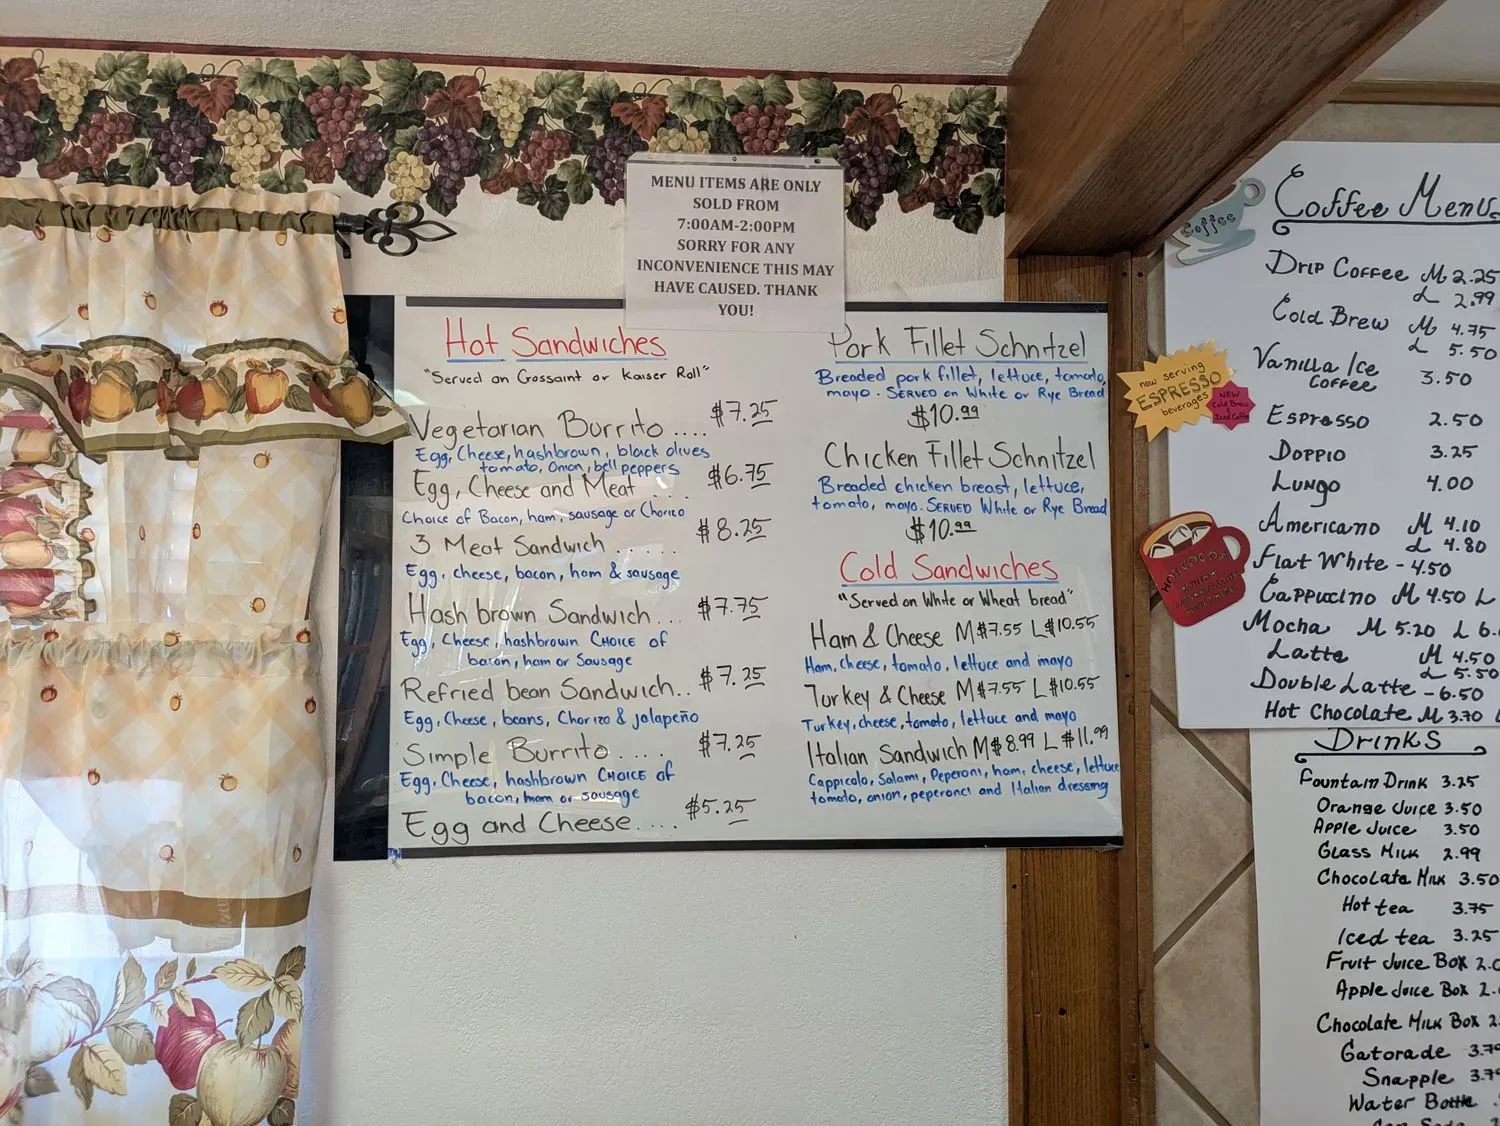 MENU ITEMS ARE ONLY
SOLD FROM
7:00AM-2:00PM
SORRY FOR ANY
INCONVENIENCE THIS MAY
HAVE CAUSED. THANK
YOU!
Hot Sandwiches
"Served on Crossaint or Kaiser Roll"
Vegetarian Burrito .... $7.25
Egg, Cheese, hashbrown, black olives
tomato, Onion, bell peppers
Egg, Cheese and Meat ... $6.75
Choice of Bacon, ham, sausage or Chorizo
3 Meat Sandwich ..... $8.25
Egg, cheese, bacon, ham & sausage
Hash brown Sandwich... $7.75
Egg, Cheese, hashbrown Choice of
bacon, ham or Sausage
Refried bean Sandwich.. $7.25
Egg, Cheese, beans, Chorizo & jalapeño
Simple Burrito..... $7.25
Egg, Cheese, hashbrown Choice of
bacon, ham or sausage
Egg and Cheese.... $5.25
Pork Fillet Schnitzel
Breaded pork fillet, lettuce, tomato,
mayo. Served on White or Rye Bread
$10.99
Chicken Fillet Schnitzel
Breaded chicken breast, lettuce,
tomato, mayo. Served White or Rye Bread
$10.99
Cold Sandwiches
"Served on White or Wheat bread"
Ham & Cheese M$7.55 L$10.55
Ham, cheese, tomato, lettuce and mayo
Turkey & Cheese M$7.55 L$10.55
Turkey, cheese, tomato, lettuce and mayo
Italian Sandwich M$8.99 L$11.99
Cappicalo, Salami, Peperoni, ham, cheese, lettuce
tomato, onion, peperonci and Italian dressing
Coffee
Coffee Menu
Drip Coffee M 2.25
L 2.99
Cold Brew M 4.75
L 5.50
Vanilla Ice
Coffee 3.50
now serving
ESPRESSO
beverages
NEW
Cold Brew
Iced Coffee
Espresso 2.50
Doppio 3.25
Lungo 4.00
Americano M 4.10
L 4.80
Flat White - 4.50
Cappuccino M 4.50 L
Mocha M 5.20 L 6.
Latte M 4.50
L 5.50
Double Latte - 6.50
Hot Chocolate M 3.70
HOT COCOA
Drinks
Fountain Drink 3.25
Orange Juice 3.50
Apple Juice 3.50
Glass Milk 2.99
Chocolate Milk 3.50
Hot tea 3.75
Iced tea 3.25
Fruit Juice Box 2.0
Apple Juice Box 2.
Chocolate Milk Box 2
Gatorade 3.79
Snapple 3.79
Water Bottle